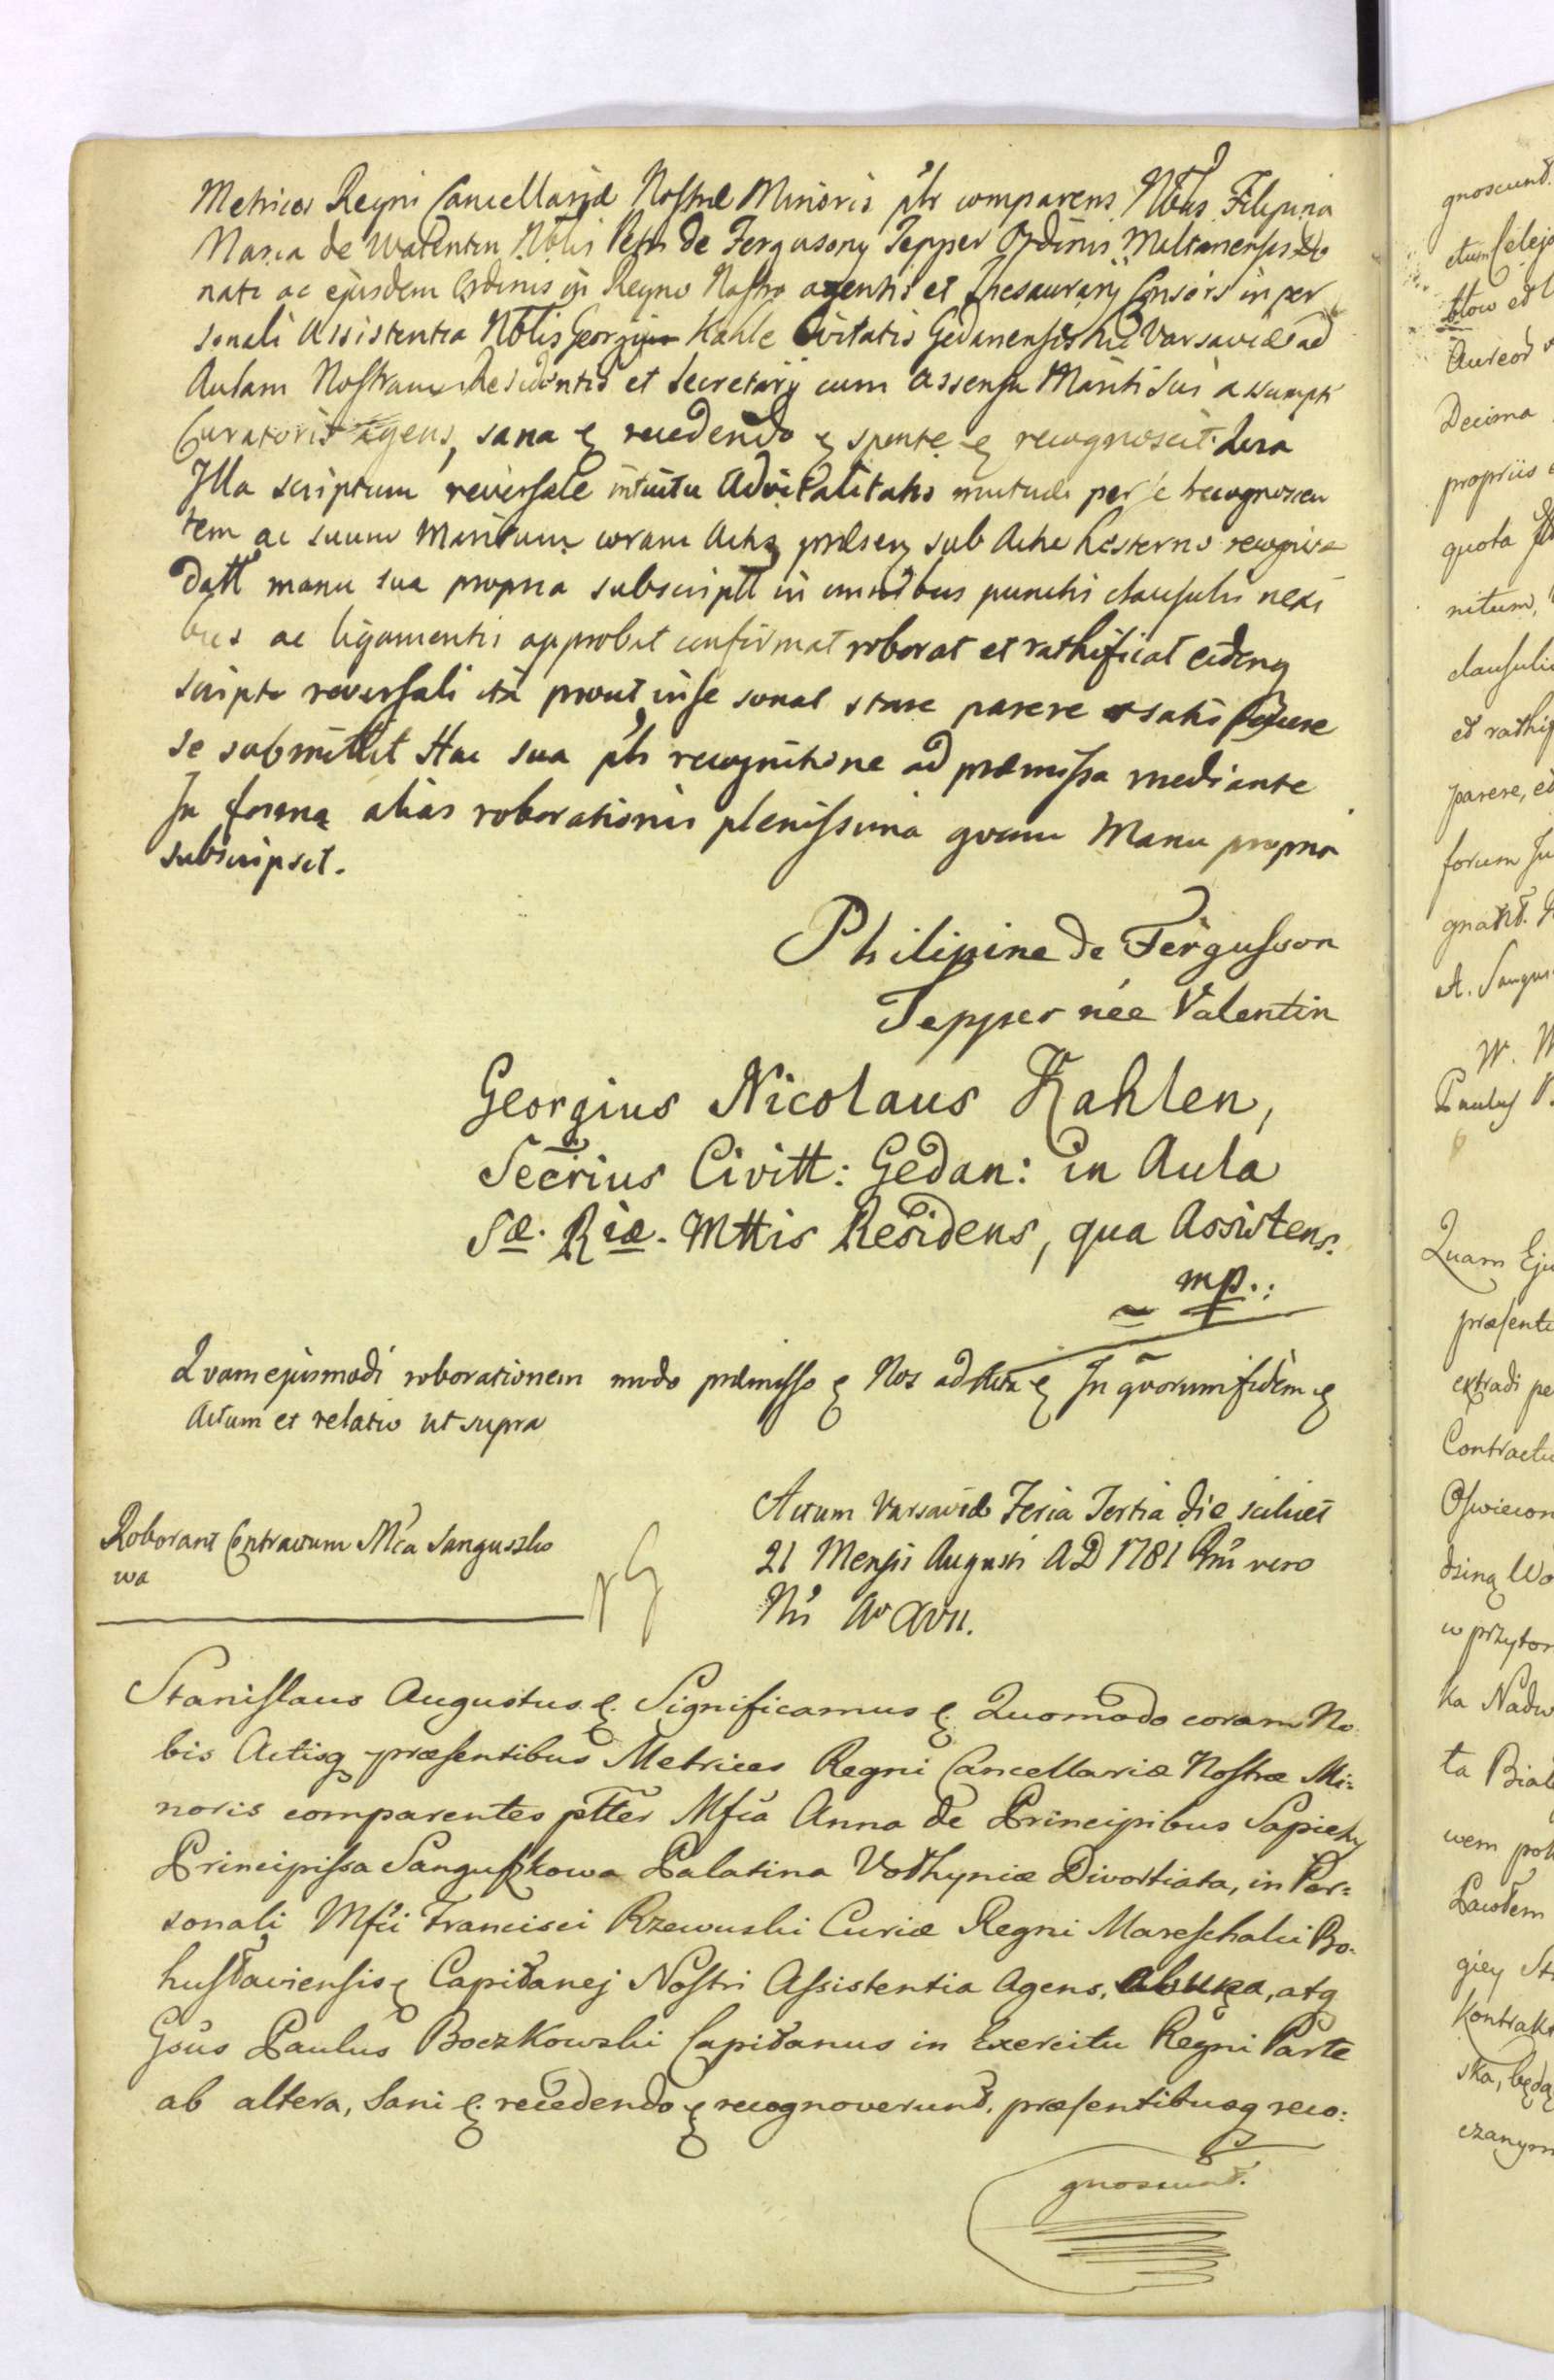 Metrices Regni Cancellariæ Nostræ Minoris pltr comparens Nblis Filipina
Maria de Walentin Nblis Petri de Fergusony Tepper Ordinis Maltanensis Do
nati ac ejusdem Ordinis in Regno Nostro agentis et Thesaurarij Consors in per
sonali Assistentia Nblis Georgij Kahle Civitatis Gedanensis hic Varsaviæ ad
Aulam Nostram Residentis et Secretarij cum assensu Mariti sui assumpti
Curatoris agens, sana ę recedendo ę sponte ę recognoscit. Quia
Illa scriptum reversale intuitu Advitalitatis mutuæ per se recognoscen
tem ac suum Maritum coram Actis præsenę sub Actu hesterno recognitæ
datt manu sua propria subscriptt in omnibus punctis clausulis nexi
bus ac ligamentis approbat confirmat roborat et rathificat eidemq
scripto reversali ita prout in se sonat stare parere et satis facere
se submittit Hac sua pltr recognitione ad præmissa mediante
In forma alias roborationis plenissima qvam Manu propria
subscripsit.
Philipine de Fergusson
Tepper née Valentin
Georgius Nicolaus Kahlen,
Secrius Civitt: Gedan: in Aula
Sæ. Riæ. Mttis Residens, qua Assistens.
mp.:
Qvam ejusmodi roborationem modo præmisso ę Nos ad Acta ę In qvorum fidem ę
Actum et relatio ut supra
Actum Varsaviæ Feria Tertia die scilicet
21 Mensis Augusti AD 1781 Rni vero
Nri Ao XVII.
Roborant Contractum Mca Sanguszko
wa
Stanislaus Augustus ę. Significamus ę. Quomodo coram No
bis Actisq præsentibus Metrices Regni Cancellariæ Nostræ Mi=
noris comparentes pltter Mfica Anna de Principibus Sapiehy
Principissa Sanguszkowa Palatina Volhyniæ Divortiata, in Per=
sonali Mfici Francisci Rzewuski Curiæ Regni Mareschalci Bo=
huslaviensis ę Capitanej Nostri Assistentia Agens, ab una, atq
Gsus Paulus Boczkowski Capitanus in Exercitu Regni Parte
ab altera, Sani ę. recedendo ę recognoverunt. præsentibusq reco:
gnoscunt.
gnoscunt.
Aureor
Decima
propriis
quota
nitum,
clausulis
et rathif
parere, et
forum
W. M
Paulus
Quam Eju
præsenti
extradi pe
Contractu
w przytom
ka Nadw
ta Biał
Pawłem
giey
Kontrakt
ska, będą
czanym